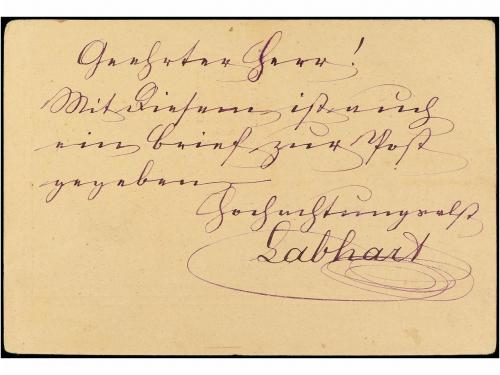 Geehrter Herr!
Mit Diesem ist auch
ein Brief zur Post
gegeben
Hochachtungsvollst
Labhart